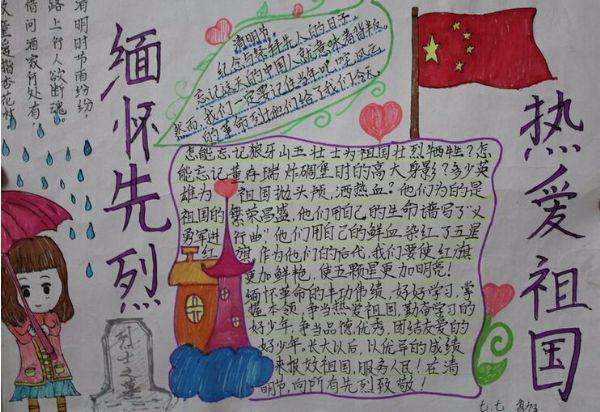 清明时节雨纷纷,
路上行人欲断魂。
借问酒家何处有,
缅怀先烈
清明节
纪念与祭拜先人的日子,
忘记这天的中国人就意味着背叛。
然而,我们一定要记住当年叱咤风云
的革命烈士他们给了我们今天。
热爱祖国
怎能忘记狼牙山五壮士为祖国壮烈牺牲?怎
能忘记董存瑞炸碉堡时的高大身影?多少英
雄为 祖国抛头颅,洒热血?他们为的是
祖国的繁荣昌盛,他们用自己的生命谱写了"义
勇军进行曲",他们用自己的鲜血染红了五星
红旗,作为他们的后代,我们要使红旗
更加鲜艳,使五颗星更加明亮!
缅怀革命的丰功伟绩,好好学习,掌
握本领,争当热爱祖国,勤奋学习的
好少年,争当品德优秀,团结友爱的
好少年。长大以后,以优异的成绩
来报效祖国,服务人民!在清
明节,向所有先烈致敬!
烈士之墓